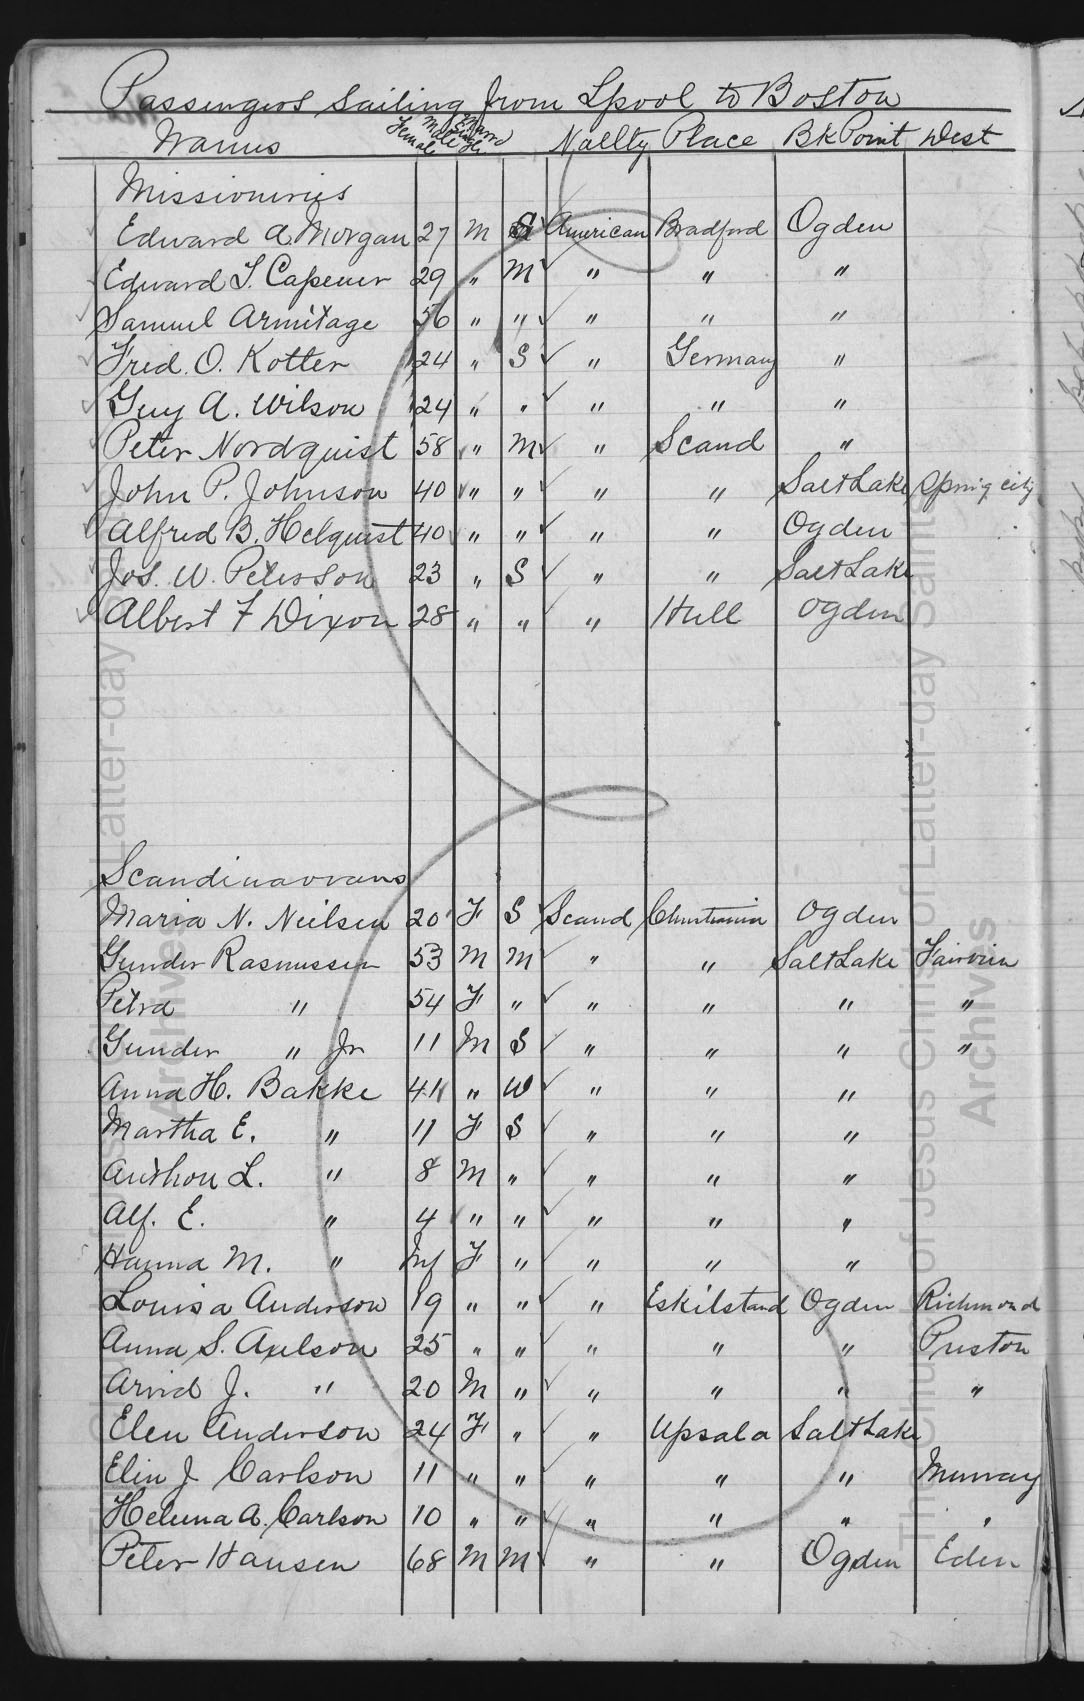 Passengers Sailing from Lpool to Boston
Names Female Male Single Marrd Nallty Place BkPoint West
Missioneries
Edward A. Morgan 27 M S American Bradford Ogden
Edward T. Capener 29 " M " " "
Samuel Armitage 56 " " " " "
Fred. O. Kotter 24 " S " Germany "
Guy A. Wilson 24 " " " " "
Peter Nordquist 58 " M " Scand "
John P. Johnson 40 " " " " Salt Lake Spring city
Alfred B. Helquist 40 " " " " Ogden
Jos. W. Peterson 23 " S " " Salt Lake
Albert F Dixon 28 " " " Hull Ogden
Scandinavians
Maria N. Neilsen 20 F S Scand Christiania Ogden
Gunder Rasmussen 53 M M " " Salt Lake Fairview
Petra " 54 F " " " " "
Gunder " Jr 11 M S " " " "
Anna H. Bakke 41 " W " " "
Martha E. " 11 F S " " "
Anthon L. " 8 M " " " "
Alf. E. " 4 " " " " "
Hanna M. " Inf F " " " "
Louisa Anderson 19 " " " Eskilstand Ogden Richmond
Anna S. Axelson 25 " " " " " Preston
Arvid J. " 20 M " " " " "
Elen Anderson 24 F " " Upsala Salt Lake
Elin J Carlson 11 " " " " " Murray
Helena A. Carlson 10 " " " " " "
Peter Hansen 68 M M " " Ogden Eden
The Church of Jesus Christ of Latter-day Saints
Archives